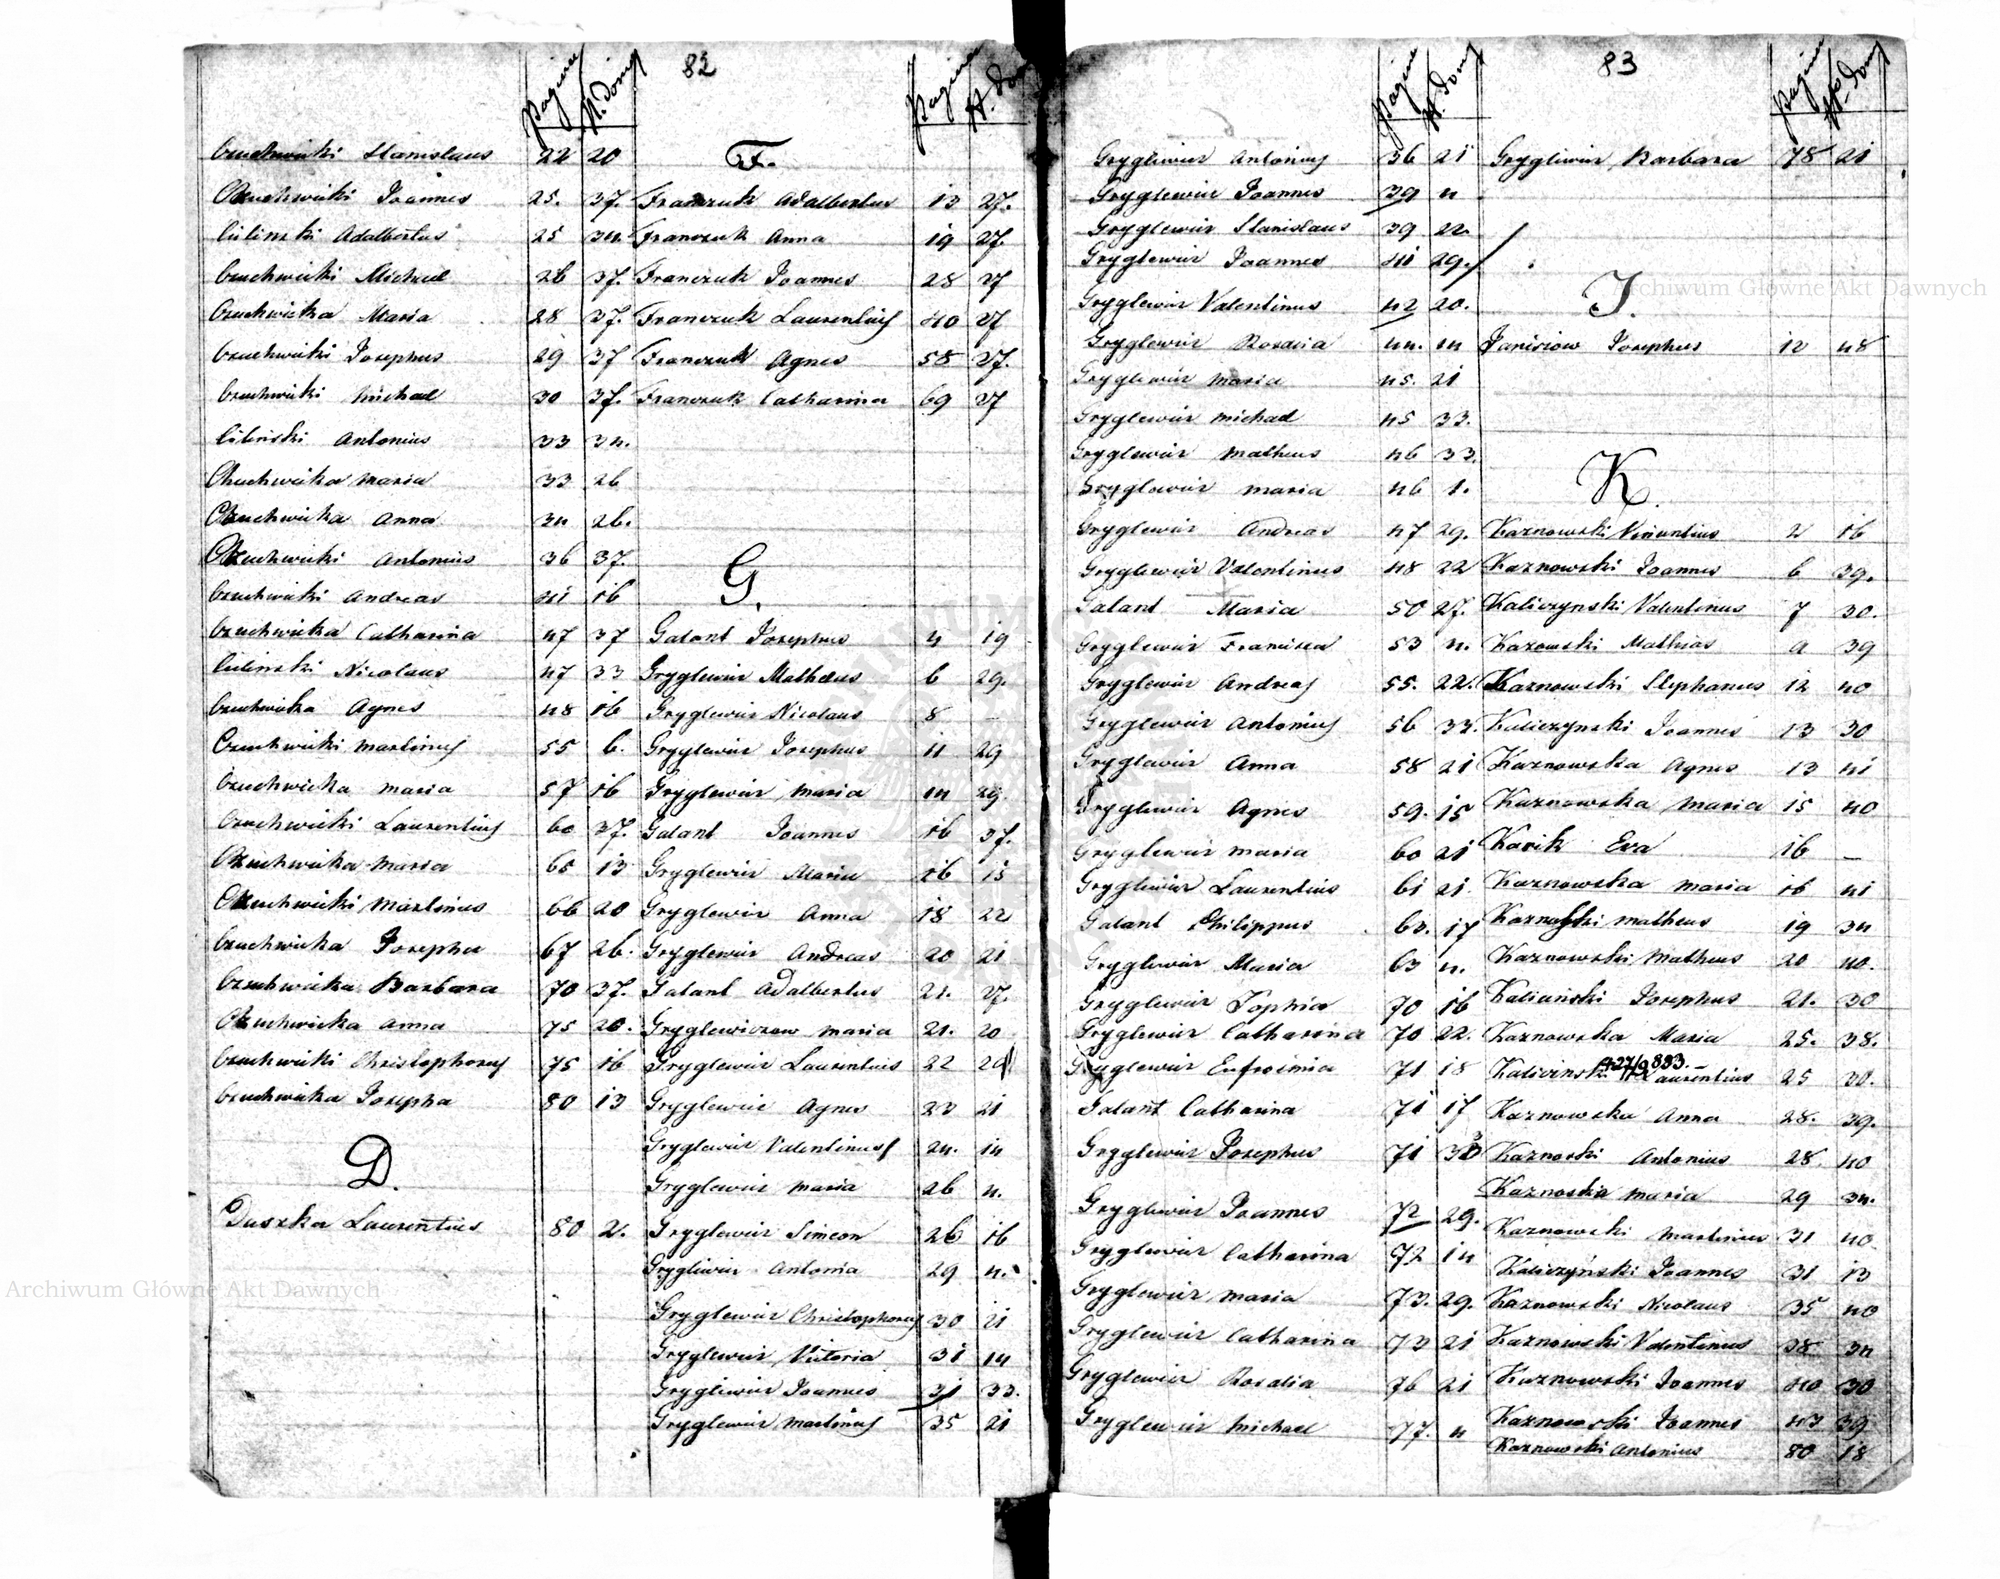 82
Pagina N. dom
Czuchwicki Stanislaus 22 20
Czuchwicki Joannes 25. 37.
Cilinski Adalbertus 25 34.
Czuchwicki Michael 26 37.
Czuchwicka Maria 28 37.
Czuchwicki Josephus 29 37
Czuchwicki Michael 30 37.
Cilinski Antonius 33 34.
Czuchwicka Maria 33 26
Czuchwicka Anna 34 26.
Czuchwicki Antonius 36 37.
Czuchwicki Andreas 41 16
Czuchwicka Catharina 47 37
Cilinski Nicolaus 47 33
Czuchwicka Agnes 48 16
Czuchwicki Martinus 55 6.
Czuchwicka Maria 57 16
Czuchwicki Laurentius 60 37.
Czuchwicka Maria 65 13
Czuchwicki Martinus 66 20
Czuchwicka Josepha 67 26.
Czuchwicka Barbara 70 37.
Czuchwicka Anna 75 20.
Czuchwicki Christophorus 75 16
Czuchwicka Josepha 80 13
D.
Duszka Laurentius 80 2.
Pagina N. dom
F.
Franczuk Adalbertus 13 27.
Franczuk Anna 19 27.
Franczuk Joannes 28 27
Franczuk Laurentius 40 27
Franczuk Agnes 58 27.
Franczuk Catharina 69 27
G.
Galant Josephus 4 19
Gryglewicz Matheus 6 29.
Gryglewicz Nicolaus 8 —
Gryglewicz Josephus 11 29
Gryglewicz Maria 14 29.
Galant Joannes 16 37.
Gryglewicz Maria 16 15
Gryglewicz Anna 18 22
Gryglewicz Andreas 20 21
Galant Adalbertus 21. 27.
Gryglewiczow Maria 21. 20
Gryglewicz Laurentius 22 20
Gryglewicz Agnes 23 21
Gryglewicz Valentinus 24. 14
Gryglewicz Maria 26 4.
Gryglewicz Simeon 26 16
Gryglewicz Antonia 29 4.
Gryglewicz Christophorus 30 21
Gryglewicz Victoria 31 14
Gryglewicz Joannes 31 33.
Gryglewicz Martinus 35 21
83
Pagina N. dom
Gryglewicz Antonius 36 21
Gryglewicz Joannes 39 4
Gryglewicz Stanislaus 39 22.
Gryglewicz Joannes 41 29.
Gryglewicz Valentinus 42 20.
Gryglewicz Rosalia 44. 14
Gryglewicz Maria 45. 21
Gryglewicz Michael 45 33.
Gryglewicz Matheus 46 33.
Gryglewicz Maria 46 1.
Gryglewicz Andreas 47 29.
Gryglewicz Valentinus 48 22
Galant Maria 50 27.
Gryglewicz Francisca 53 4.
Gryglewicz Andreas 55. 22.
Gryglewicz Antonius 56 33.
Gryglewicz Anna 58 21
Gryglewicz Agnes 59. 15
Gryglewicz Maria 60 21
Gryglewicz Laurentius 61 21.
Galant Philippus 63. 17
Gryglewicz Maria 63 4.
Gryglewicz Sophia 70 16
Gryglewicz Catharina 70 22.
Gryglewicz Eufrosinia 71 18
Galant Catharina 71 17
Gryglewicz Josephus 71 33
Gryglewicz Joannes 72 29.
Gryglewicz Catharina 72 14
Gryglewicz Maria 73. 29.
Gryglewicz Catharina 73 21
Gryglewicz Rosalia 76 21
Gryglewicz Michael 77. 4
Pagina No dom
Gryglewicz Barbara 78 21
J.
Janiszow Josephus 12 48
K.
Kaznowski Vincentius 2 16
Kaznowski Joannes 6 39.
Kaliczynski Valentinus 7 30.
Kazowski Mathias 9 39
Kaznowski Stephanus 12 40
Kaliczynski Joannes 13 30
Kaznowska Agnes 13 41
Kaznowska Maria 15 40
Kozik Eva 16 —
Kaznowska Maria 16 41
Kaznowski Matheus 19 34
Kaznowski Matheus 20 40.
Kaliciński Josephus 21. 30
Kaznowska Maria 25. 38.
27/9 883.
Kalicinski Laurentius 25 30.
Kaznowska Anna 28. 39.
Kaznowski Antonius 28. 40
Kaznoska Maria 29 34.
Kaznowski Martinus 31 40
Kaliczyński Joannes 31 13
Kaznowski Nicolaus 35 40
Kaznowski Valentinus 38 34
Kaznowski Joannes 40 30
Kaznowski Joannes 43 39
Kaznowski Antonius 80 18
Archiwum Główne Akt Dawnych
Archiwum Główne Akt Dawnych